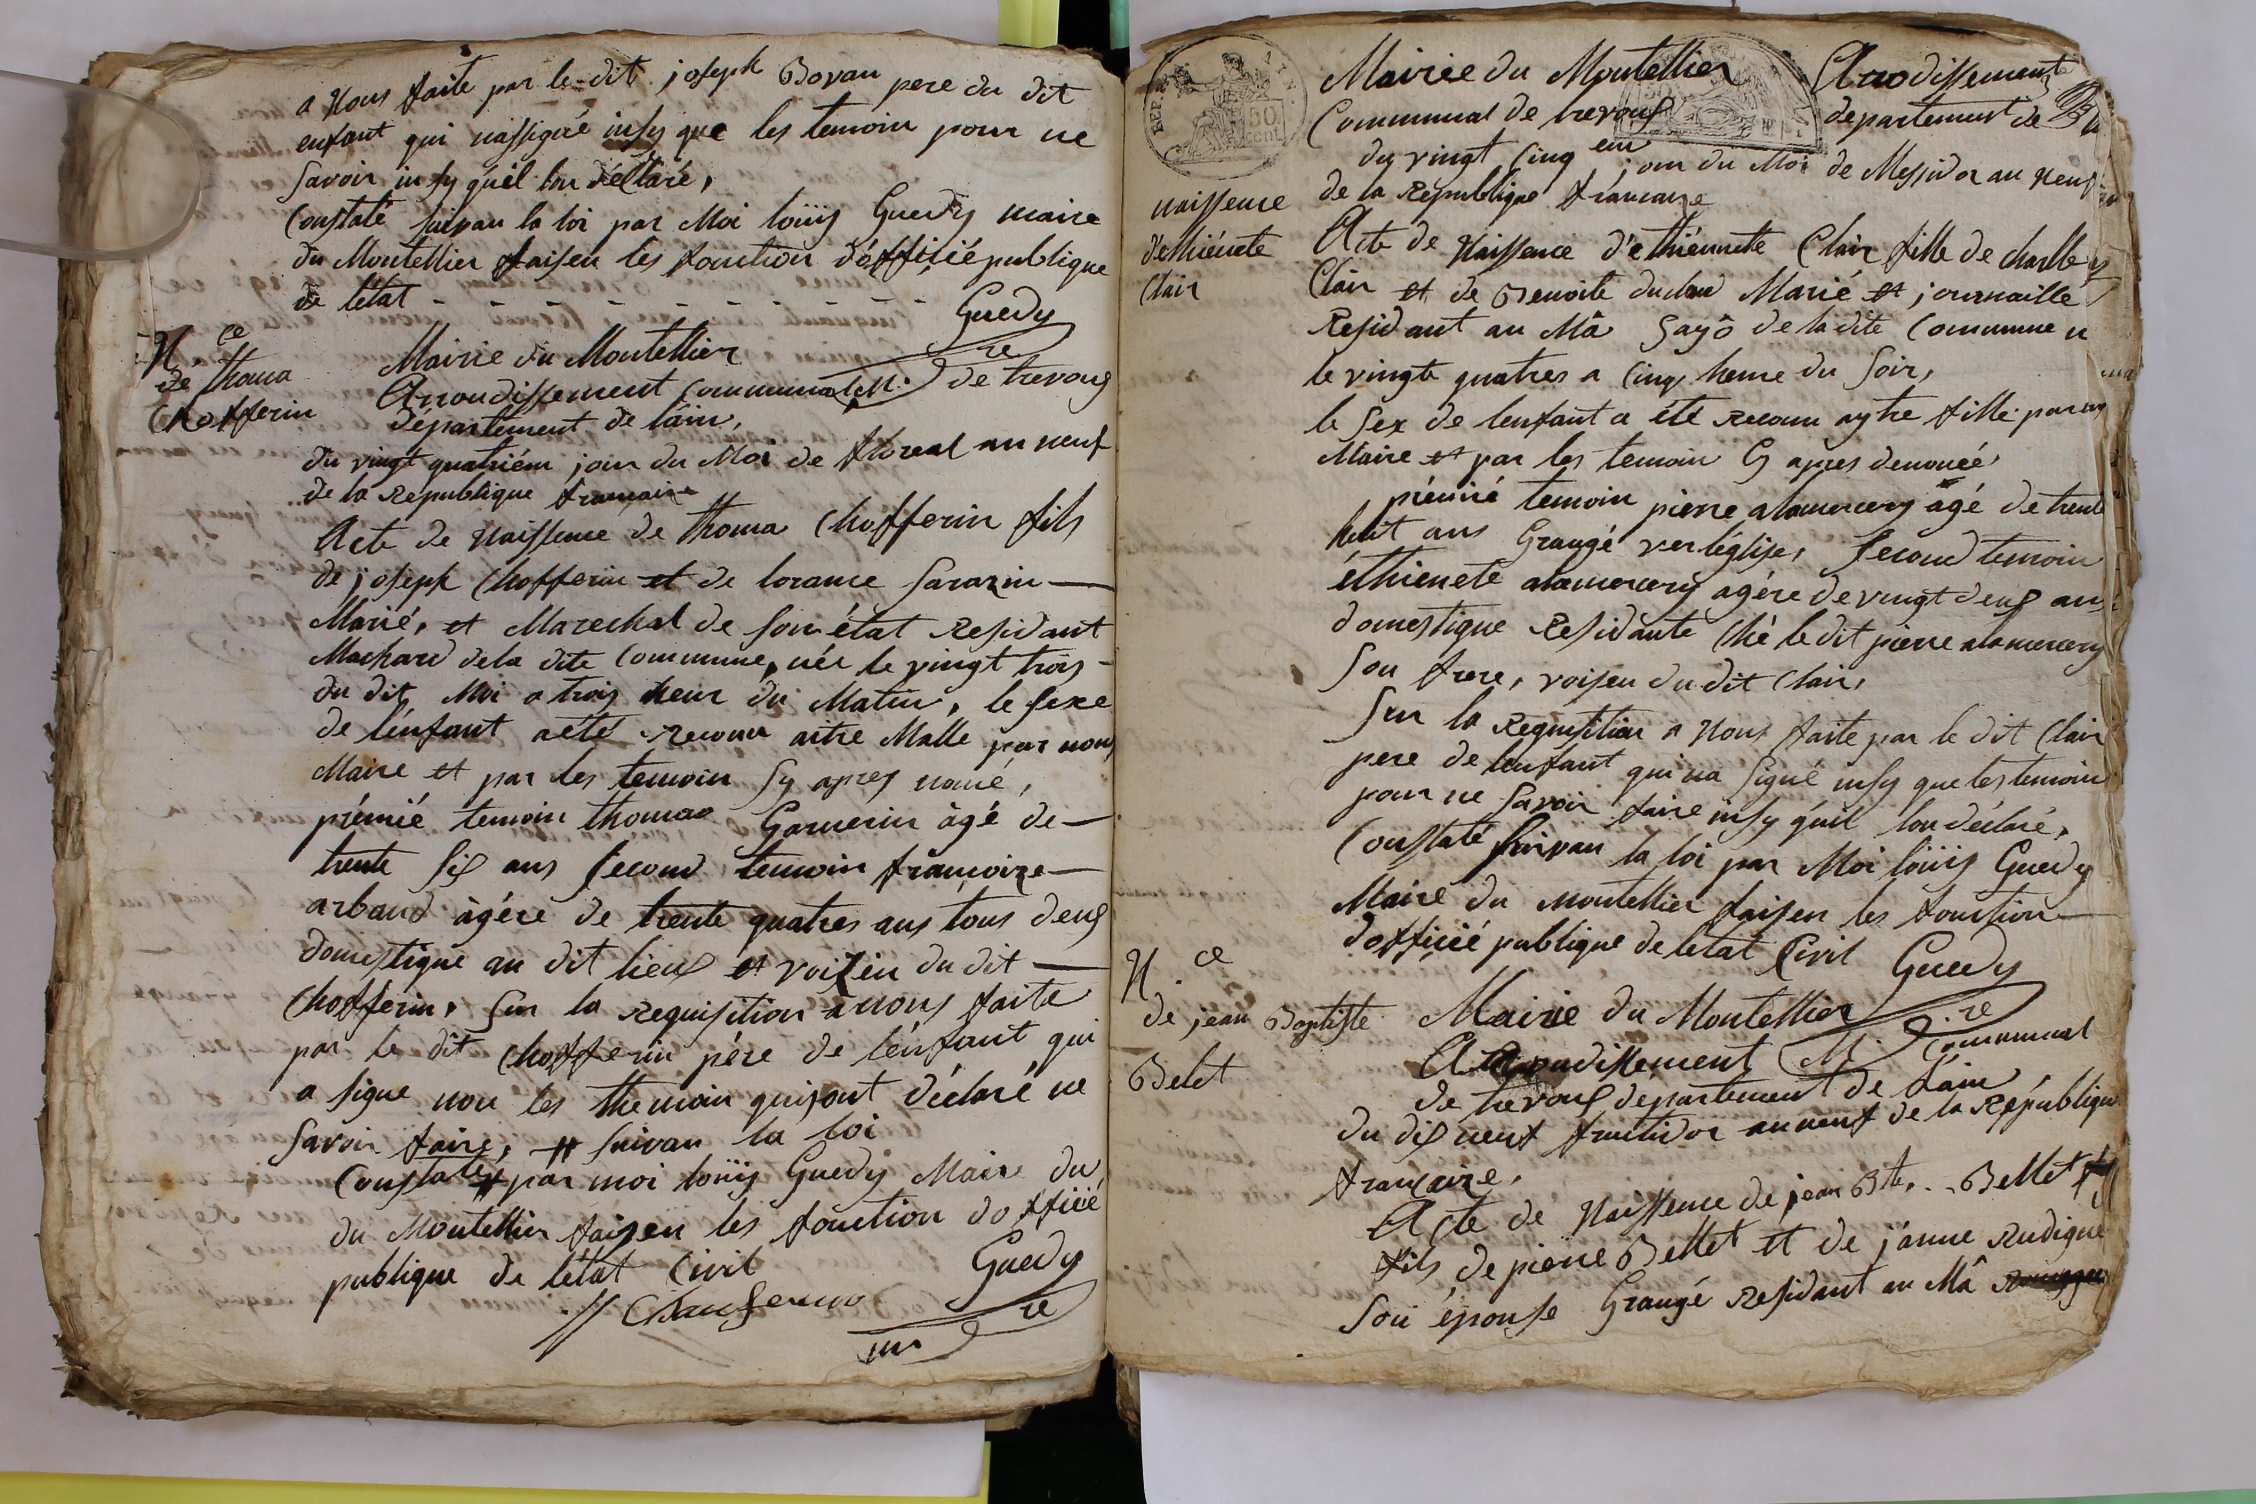 a Nous faite par le dit joseph Bovan pere du dit
enfant qui nassigné insy que les temoin pour ne
Savoir insy quél lon déClaré,
Constaté suivan la loi par Moi loüis Guedy maire
du Montellier faisen les fonction d'officié publique
de létat - - - - - - - - - -
Guedy
re
N ce
de thoma
Chofferin
Mairie du Montellier
Arrondissement Communal M. de trevoux
département de lain,
du vingt quatriém jour du Moi de floreal an neuf
de la République francaire
Acte de Naissence de thoma Chofferin fils
de joseph Chofferin et de lorance Sarazin —
Marié, et Marechal de son état Residant
Machard dela dite Commune, née le vingt trois -
du dit Moi a trois heur du Matin, le sexe
de lénfant aété reconu aitre Malle par nous
Maire et par les temoin Sy apres nomé,
prémié temoin thomas Garnerin àgé de —
trente six ans second temoin francoize —
arband àgéré de trente quatres ans tous deux
domestique au dit lieux et voizin du dit —
Chofferin, sur la requisition a nous faite
par le dit Chofferin pére de lénfant qui
a signe non les themoin quiont déclaré ne
Savoir faire, # suivan la loi
Constaté # par moi loüis Guedy Maire du
du Montellier faisen les fonction dofficié
publique de létat Civil
Guedy
re
Chauferin
N
Mairiee du Montellier Arrodissement
Communal de trevoux departement de
du vingt Cinq em jour du Moi de Messidor an neuf
de la République francaire
naissence
dethiénete
Clair
Acte de Naissence déthiénnete Clair fille de Charlles
Clair et de Benoite duclau Marié et journaillé
Residant au Mâ Gayô de la dite Commune n
le vingte quatres a Cinq heure du Soir,
le Sex de lenfant a été reconu aytre fille par
Maire et par les temoin Cy apres denoncé,
prémié temoin pierre alamercery àgé de trente
huit ans Grangé ver léglise, second temoin
éthienete alamercery agére de vingt deux ans
domestique Residante Ché le dit pierre alamercery
Son frere, voisen du dit Clair,
Sur la requisition a Nous faite par le dit Clair
pere de lenfant qui na Signé insy que les temoin
pour ne Savoir faire insy quil lon déclaré,
Constaté suivan la loi par Moi loüis Guedy
Maire du Montellier faisen les fonction —
dofficié publique de létat Civil Guedy
re
N. ce
de jean Baptiste
Belet
Mairie du Montellier
Arrondissement M. Communal
de trevoux département de Lain,
du dix neuf fructidor an neuf de la République
francaire,
Acte de Naissence de jean Bte, - - Bellet
fils de pierre Bellet et de jànne Rudigué
Son éponse Grangé Residant au Mâ